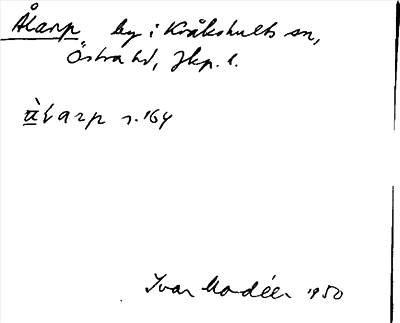 Ålarp by i Kråkshults sn,
Östra hd, Jkp. l.
s. 164
Ivar Modéer 1950